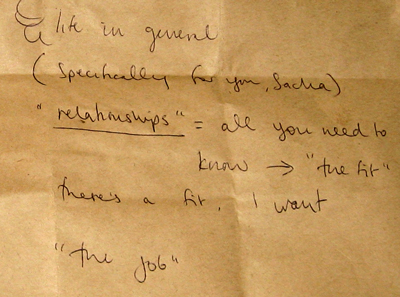 & life in general
(specifically for you, Sacha)
"relationships" = all you need to
know → "the fit"
there's a fit. I want
"the job"